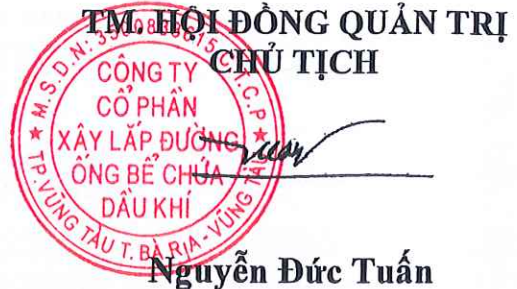 TM. HỘI ĐỒNG QUẢN TRỊ
CHỦ TỊCH
CÔNG TY
CỔ PHẦN
XÂY LẮP ĐƯỜNG
ỐNG BỂ CHỨA
DẦU KHÍ
TP.VŨNG TÀU T. BÀ RỊA - VŨNG TÀU
Nguyễn Đức Tuấn